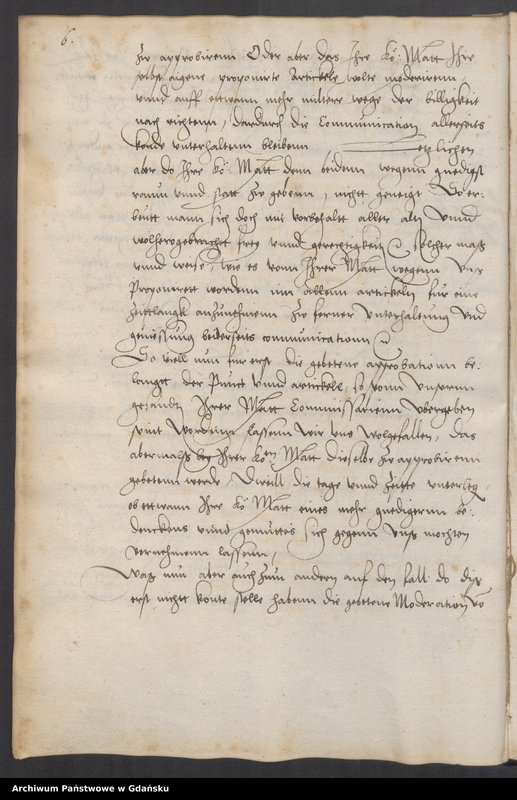 6.
zu approbirenn Oder aber das Ihre Kö: Matt Ihre
selbst aigene, proponirte Artickele wolte moderirenn,
vnnd auff ettwann mehr miltere wege der billigkeit
nach richtenn, dardurch die Communication allerseits
konde vnterhaltenn bleibenn etzlichen
aber do Ihre Kö: Matt dem beidenn wegenn gnedigst
raum vnnd statt zu gebenn, nichtt geneigt So er-
beutt mann sich doch mit vorbehaltt aller altt Vnnd
wolhergebrachtt frey vnnd gerechtigkeitt solcher maß
vnnd weise, wie es vonn Ihrer Matt wegenn Vnß
Proponirett wordenn inn allenn artickeln fur eine
Zeittlangk anzunehmenn zu ferner Vnterhaltung Vnd
geniessung beiderseits communicationn
So viell nun fur erst die gebetene approbationn be-
langet, der Punct vnnd artickele, so vonn Vnserenn
gesandtt Ihrer Matt Commissarienn Vbergeben
seint Wordenn lassenn wir vns wolgefallen, das
abermalß bey Ihrer Kön Matt dieselbe zu approbirenn
gebetenn werde, Dieweill die tage vnnd Zeitte vnterlag,
ob ettwann Ihre Kö Matt eines mehr gnedigernn be-
denckens vnnd gemuttes sich gegenn Vnß mochten
vernehmenn lassenn,
Waß nun aber auch zum anderen auf den fall do diß
erst nichtt konte stelle habenn die gebetene Moderation